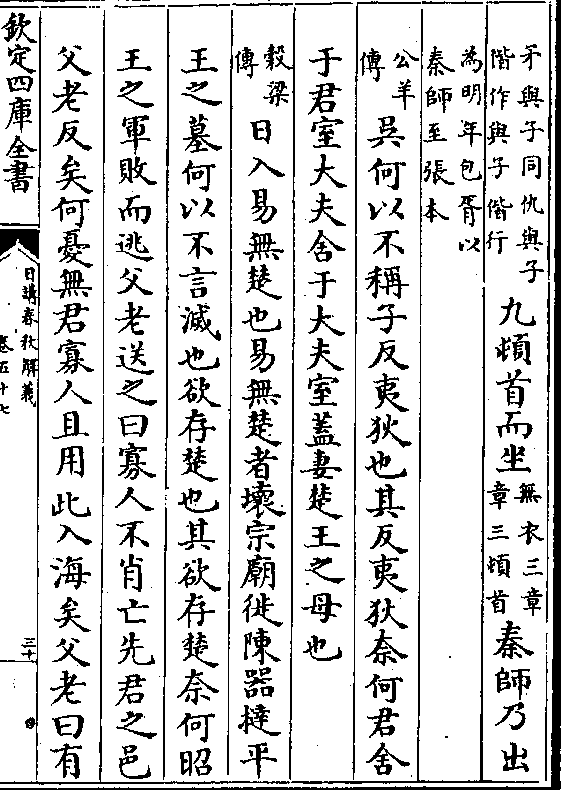 矛與子同仇與子
偕作與子偕行
九頓首而坐
無衣三章
章三頓首
秦師乃出
為明年包胥以
秦師至張本
公羊
傳
吳何以不稱子反夷狄也其反夷狄奈何君舍
于君室大夫舍于大夫室蓋妻楚王之母也
穀梁
傳
日入易無楚也易無楚者壞宗廟徙陳器撻平
王之墓何以不言滅也欲存楚也其欲存楚奈何昭
王之軍敗而逃父老送之曰寡人不肖亡先君之邑
父老反矣何憂無君寡人且用此入海矣父老曰有
欽定四庫全書
日講春秋解義
卷五十七
三十